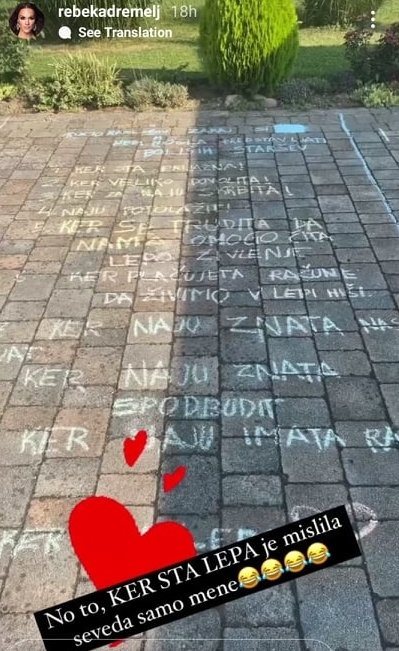 rebekadremelj 18h
See Translation
BOLJŠIH STARŠEV
1. KER STA PRIJAZNA!
2. KER VELIKO DOVOLITA!
3. KER ZA NAJU SKRBITA!
4. NAJU POTOLAŽIT!
5. KER SE TRUDITA DA
NAMA OMOGOČITA
LEPO ŽIVLENJE
KER PLAČUJETA RAČUNE
DA ŽIVIMO V LEPI HIŠI.
KER NAJU ZNATA NAS
KER NAJU ZNATA
SPODBUDIT
KER NAJU IMATA RA
KER LEPA
No to, KER STA LEPA je mislila
seveda samo mene😂😂😂😂